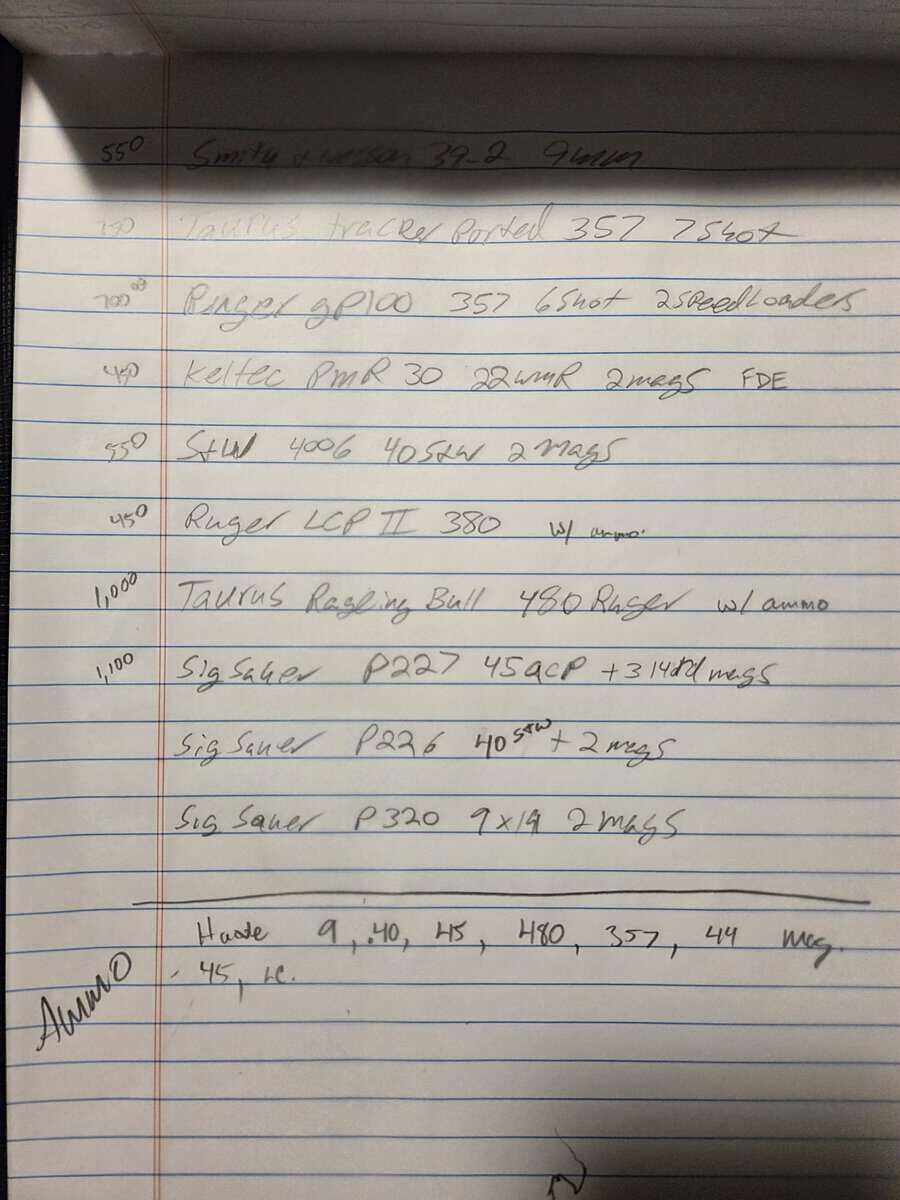 550 Smith & Wesson 39-2 9mm
Taurus tracker Ported 357 7Shot
700 00 Ruger gP100 357 6Shot 2SpeedLoaders
450 Keltec PmR 30 22wmR 2mags FDE
550 S&W 4006 40S&W 2 Mags
450 Ruger LCP II 380 w/ ammo.
1,000 Taurus Rageing Bull 480 Ruger w/ ammo
1,100 Sig Sauer P227 45acP +3 14rd mags
Sig Sauer P226 40 S&W + 2 mags
Sig Sauer P320 9x19 2 mags
9, .40, 45, 480, 357, 44 mag.
Ammo 45, LC.